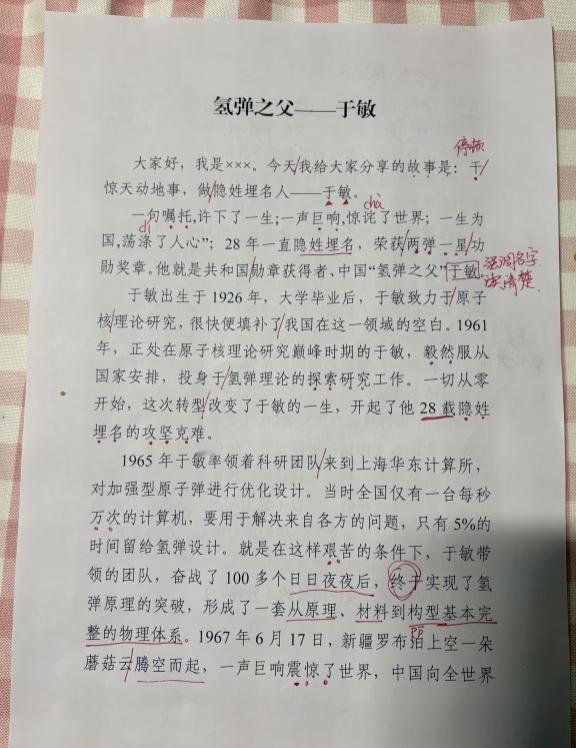 氢弹之父——于敏
停顿
大家好，我是×××。今天/我给大家分享的故事是：干/
惊天动地事，做/隐姓埋名人——于敏。
chà
一句嘱托,许下了一生;一声巨响,惊诧了世界；一生为
dí
国,荡涤了人心”；28 年一直隐姓埋名，荣获/两弹一星/功
勋奖章。他就是共和国/勋章获得者、中国“氢弹之父”于敏
强调名字
读清楚
于敏出生于 1926 年，大学毕业后，于敏致力于/原子
核/理论研究，很快便填补了/我国在这一领域的空白。1961
年，正处在原子核理论研究巅峰时期的于敏，毅然服从
国家安排，投身于/氢弹理论的探索研究工作。一切从零
开始，这次转型/改变了于敏的一生，开起了他 28 载隐姓
埋名的攻坚克难。
1965 年于敏率领着科研团队/来到上海华东计算所，
对加强型原子弹进行优化设计。当时全国仅有一台每秒
万次的计算机，要用于解决来自各方的问题，只有 5%的
时间留给氢弹设计。就是在这样艰苦的条件下，于敏带
领的团队，奋战了 100 多个日日夜夜后，终于实现了氢
弹原理的突破，形成了一套从原理、材料到构型基本完
整的物理体系。1967 年 6 月 17 日，新疆罗布泊上空一朵
蘑菇云/腾空而起，一声巨响震惊了世界，中国向全世界